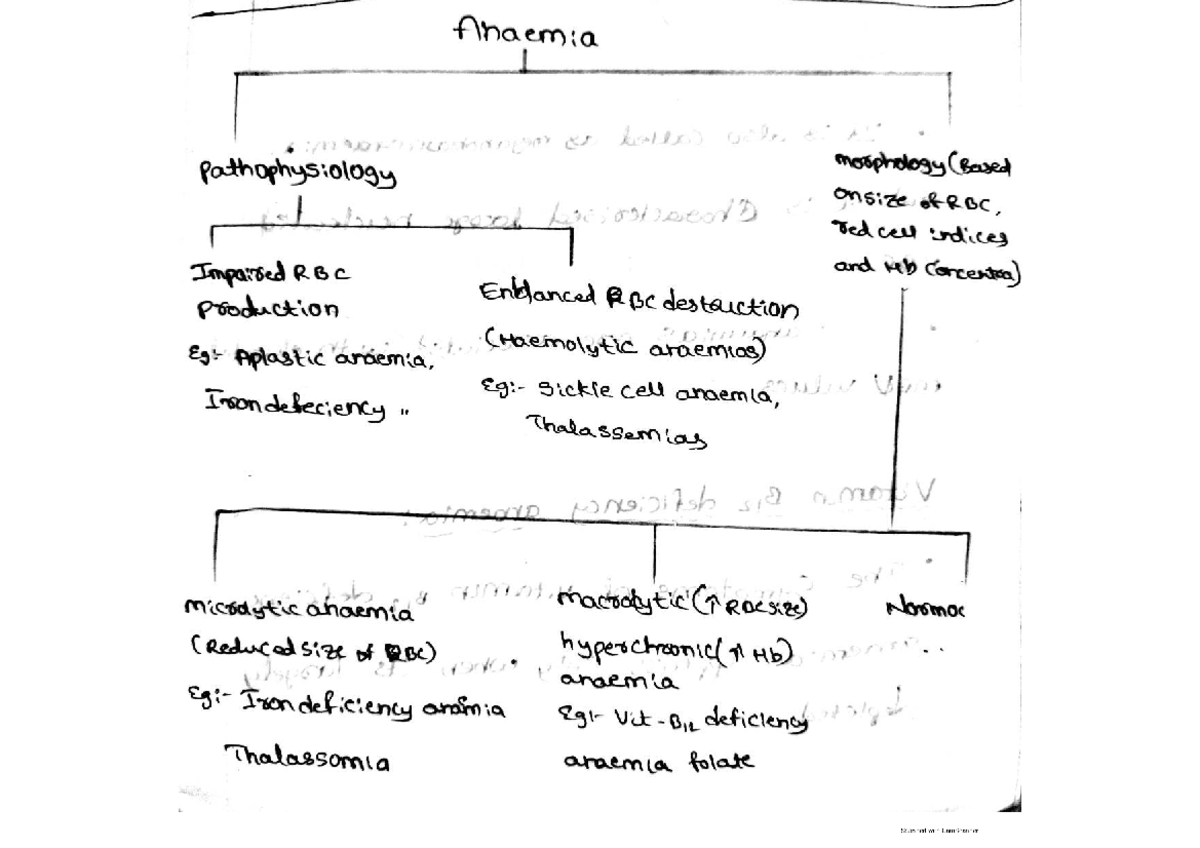 Anaemia
Pathophysiology
morphology (Based
on size of RBC,
red cell indices
and Hb
Impaired RBC
production
Eg:- Aplastic anaemia,
Iron defeciency "
Enhanced RBC destruction
(Haemolytic anaemias)
Eg:- Sickle cell anaemia,
Thalassemias
microlytic anaemia
(Reduced size of RBC)
Eg:- Iron deficiency anamia
Thalassomia
macrolytic (↑ RBC size)
hyperchromic (↑ Hb)
anaemia
Eg:- Vit-B12 deficiency
anaemia folate
Normoc